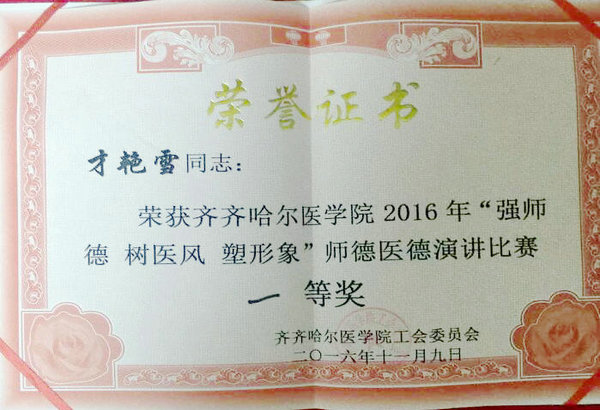 荣誉证书
才艳雪同志：
荣获齐齐哈尔医学院 2016 年“强师
德 树医风 塑形象”师德医德演讲比赛
一 等奖
齐齐哈尔医学院工会委员会
二〇一六年十一月九日